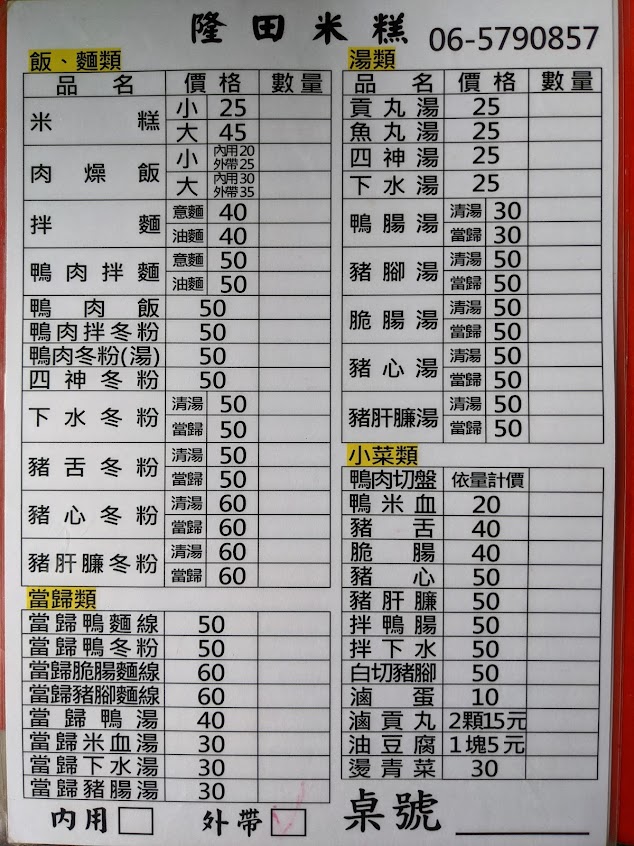 隆田米糕 06-5790857
飯、麵類
品名 價格 數量
米糕 小 25
大 45
肉燥飯 小 內用20 外帶25
大 內用30 外帶35
拌麵 意麵 40
油麵 40
鴨肉拌麵 意麵 50
油麵 50
鴨肉飯 50
鴨肉拌冬粉 50
鴨肉冬粉(湯) 50
四神冬粉 50
下水冬粉 清湯 50
當歸 50
豬舌冬粉 清湯 50
當歸 50
豬心冬粉 清湯 60
當歸 60
豬肝臁冬粉 清湯 60
當歸 60
當歸類
當歸鴨麵線 50
當歸鴨冬粉 50
當歸脆腸麵線 60
當歸豬腳麵線 60
當歸鴨湯 40
當歸米血湯 30
當歸下水湯 30
當歸豬腸湯 30
湯類
品名 價格 數量
貢丸湯 25
魚丸湯 25
四神湯 25
下水湯 25
鴨腸湯 清湯 30
當歸 30
豬腳湯 清湯 50
當歸 50
脆腸湯 清湯 50
當歸 50
豬心湯 清湯 50
當歸 50
豬肝臁湯 清湯 50
當歸 50
小菜類
鴨肉切盤 依量計價
鴨米血 20
豬舌 40
脆腸 40
豬心 50
豬肝臁 50
拌鴨腸 50
拌下水 50
白切豬腳 50
滷蛋 10
滷貢丸 2顆15元
油豆腐 1塊5元
燙青菜 30
內用 外帶 桌號